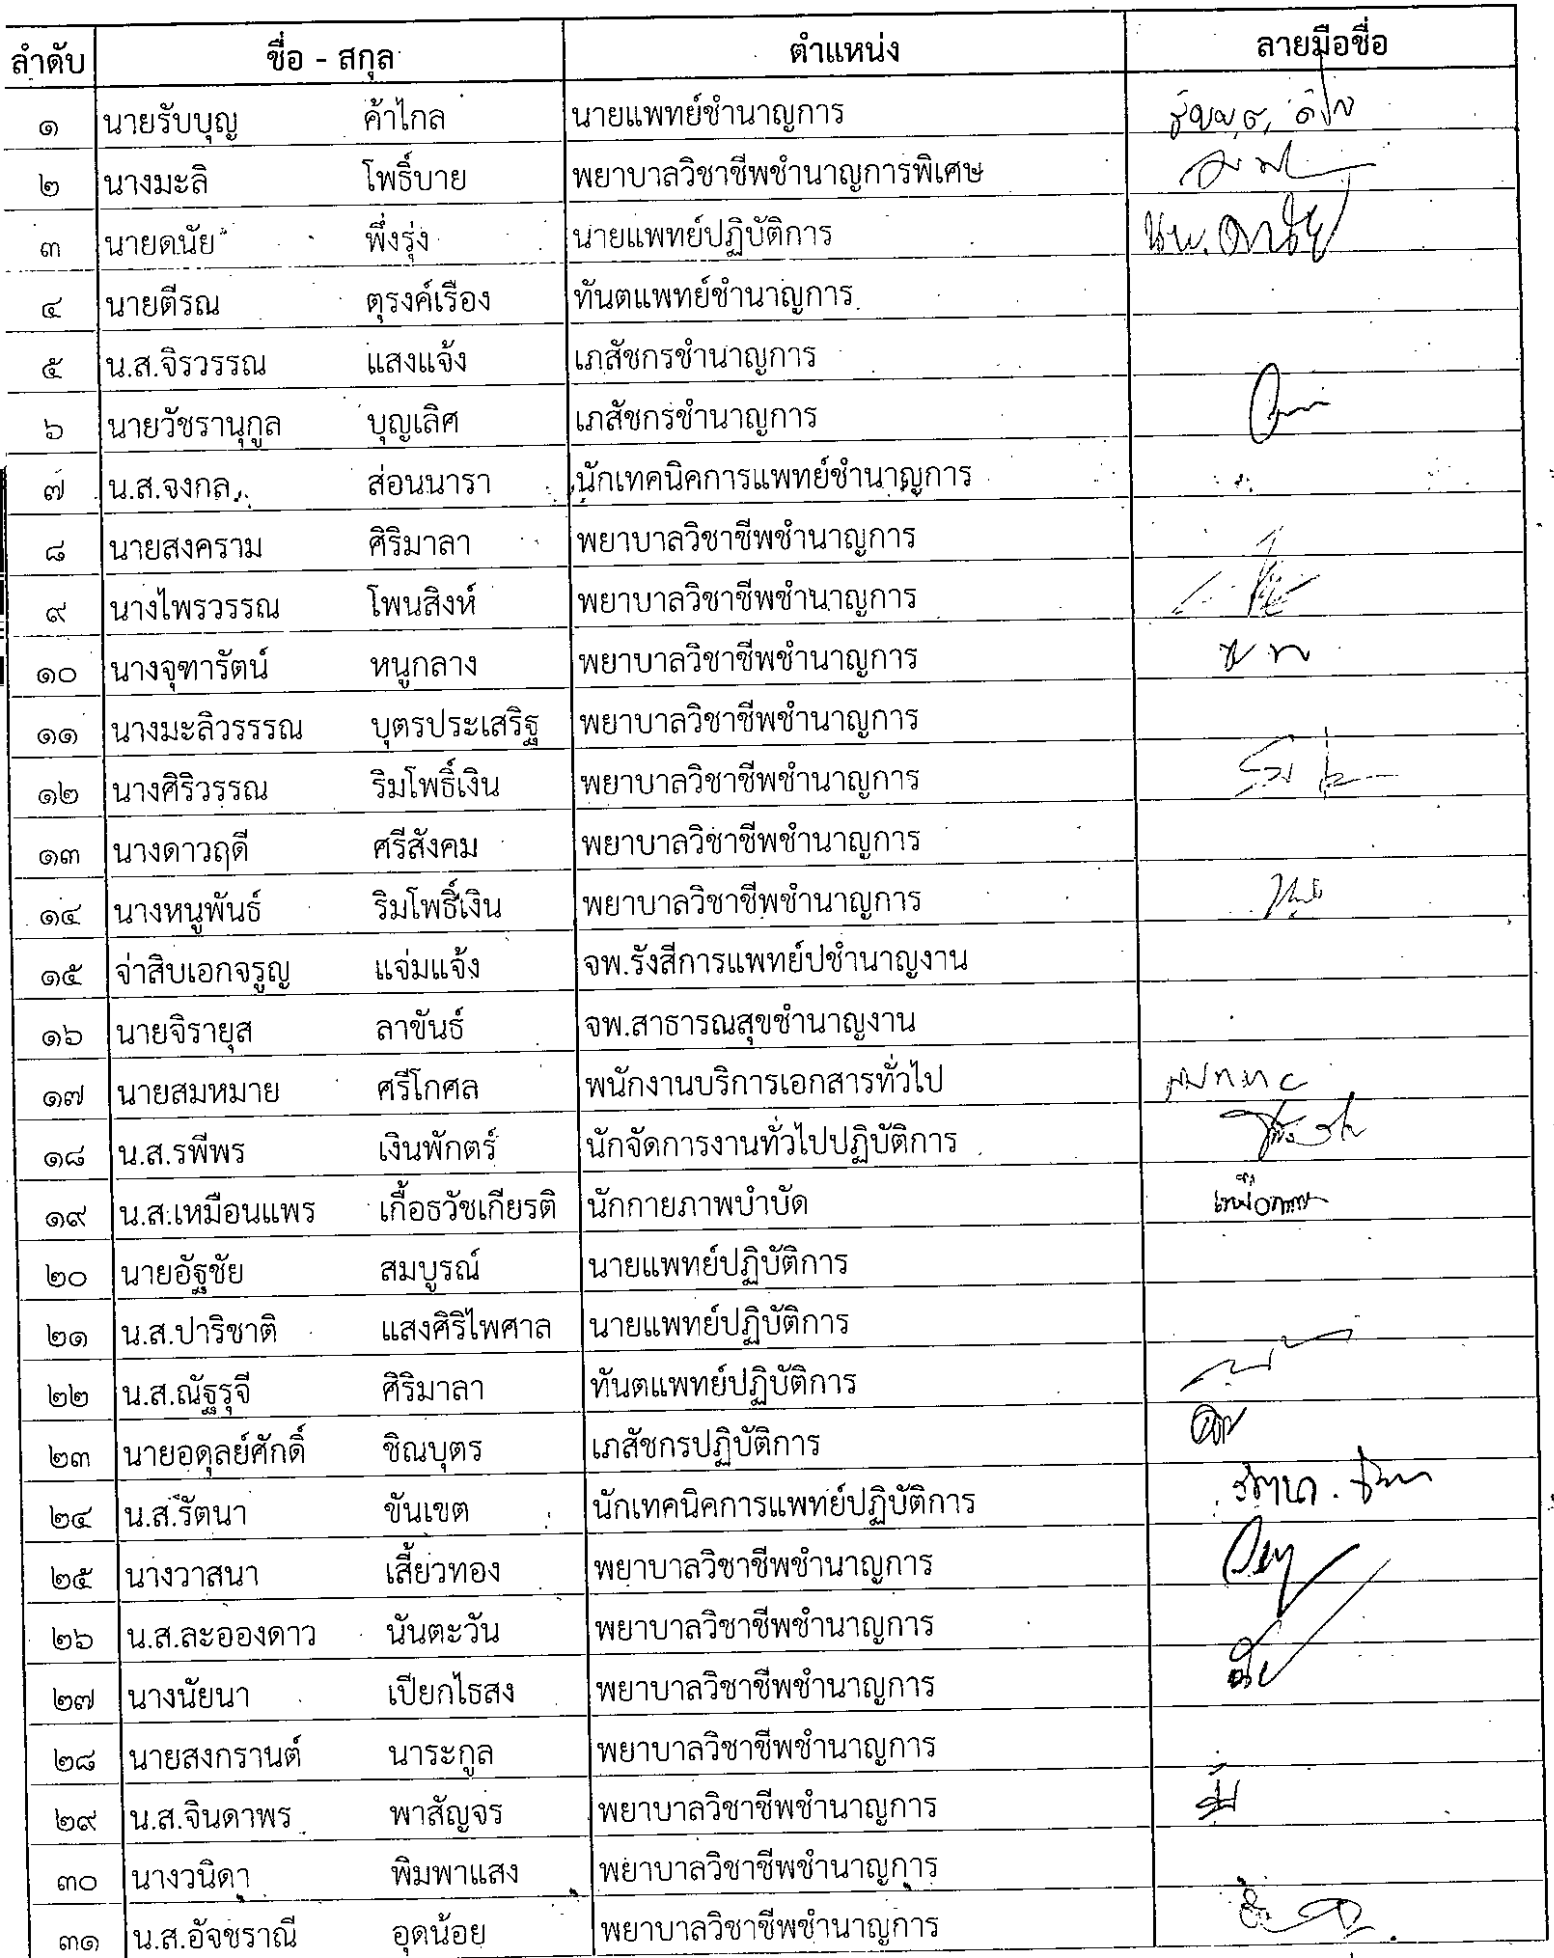 ลำดับ ชื่อ - สกุล ตำแหน่ง ลายมือชื่อ
๑ นายรับบุญ ค้าไกล นายแพทย์ชำนาญการ
๒ นางมะลิ โพธิ์บาย พยาบาลวิชาชีพชำนาญการพิเศษ
๓ นายดนัย พึ่งรุ่ง นายแพทย์ปฏิบัติการ นพ.ดนัย
๔ นายตีรณ ตุรงค์เรือง ทันตแพทย์ชำนาญการ
๕ น.ส.จิรวรรณ แสงแจ้ง เภสัชกรชำนาญการ
๖ นายวัชรานุกูล บุญเลิศ เภสัชกรชำนาญการ
๗ น.ส.จงกล ส่อนนารา นักเทคนิคการแพทย์ชำนาญการ
๘ นายสงคราม ศิริมาลา พยาบาลวิชาชีพชำนาญการ
๙ นางไพรวรรณ โพนสิงห์ พยาบาลวิชาชีพชำนาญการ
๑๐ นางจุฑารัตน์ หนูกลาง พยาบาลวิชาชีพชำนาญการ
๑๑ นางมะลิวรรรณ บุตรประเสริฐ พยาบาลวิชาชีพชำนาญการ
๑๒ นางศิริวรรณ ริมโพธิ์เงิน พยาบาลวิชาชีพชำนาญการ
๑๓ นางดาวฤดี ศรีสังคม พยาบาลวิชาชีพชำนาญการ
๑๔ นางหนูพันธ์ ริมโพธิ์เงิน พยาบาลวิชาชีพชำนาญการ
๑๕ จ่าสิบเอกจรูญ แจ่มแจ้ง จพ.รังสีการแพทย์ปชำนาญงาน
๑๖ นายจิรายุส ลาขันธ์ จพ.สาธารณสุขชำนาญงาน
๑๗ นายสมหมาย ศรีโกศล พนักงานบริการเอกสารทั่วไป
๑๘ น.ส.รพีพร เงินพักตร์ นักจัดการงานทั่วไปปฏิบัติการ
๑๙ น.ส.เหมือนแพร เกื้อธวัชเกียรติ นักกายภาพบำบัด
๒๐ นายอัฐชัย สมบูรณ์ นายแพทย์ปฏิบัติการ
๒๑ น.ส.ปาริชาติ แสงศิริไพศาล นายแพทย์ปฏิบัติการ
๒๒ น.ส.ณัฐรุจี ศิริมาลา ทันตแพทย์ปฏิบัติการ
๒๓ นายอดุลย์ศักดิ์ ชิณบุตร เภสัชกรปฏิบัติการ
๒๔ น.ส.รัตนา ขันเขต นักเทคนิคการแพทย์ปฏิบัติการ
๒๕ นางวาสนา เสี้ยวทอง พยาบาลวิชาชีพชำนาญการ
๒๖ น.ส.ละอองดาว นันตะวัน พยาบาลวิชาชีพชำนาญการ
๒๗ นางนัยนา เปียกไธสง พยาบาลวิชาชีพชำนาญการ
๒๘ นายสงกรานต์ นาระกูล พยาบาลวิชาชีพชำนาญการ
๒๙ น.ส.จินดาพร พาสัญจร พยาบาลวิชาชีพชำนาญการ
๓๐ นางวนิดา พิมพาแสง พยาบาลวิชาชีพชำนาญการ
๓๑ น.ส.อัจชราณี อุดน้อย พยาบาลวิชาชีพชำนาญการ